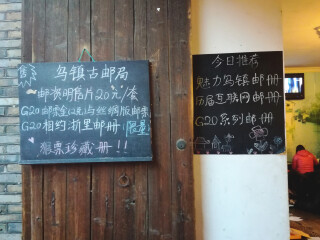 乌镇古邮局
邮资明信片20元/套
G20邮资金口汛与丝绸版邮票
G20相约浙里邮册(限量)
猴票珍藏册!!
今日推荐
魅力乌镇邮册
历届互联网邮册
G20系列邮册